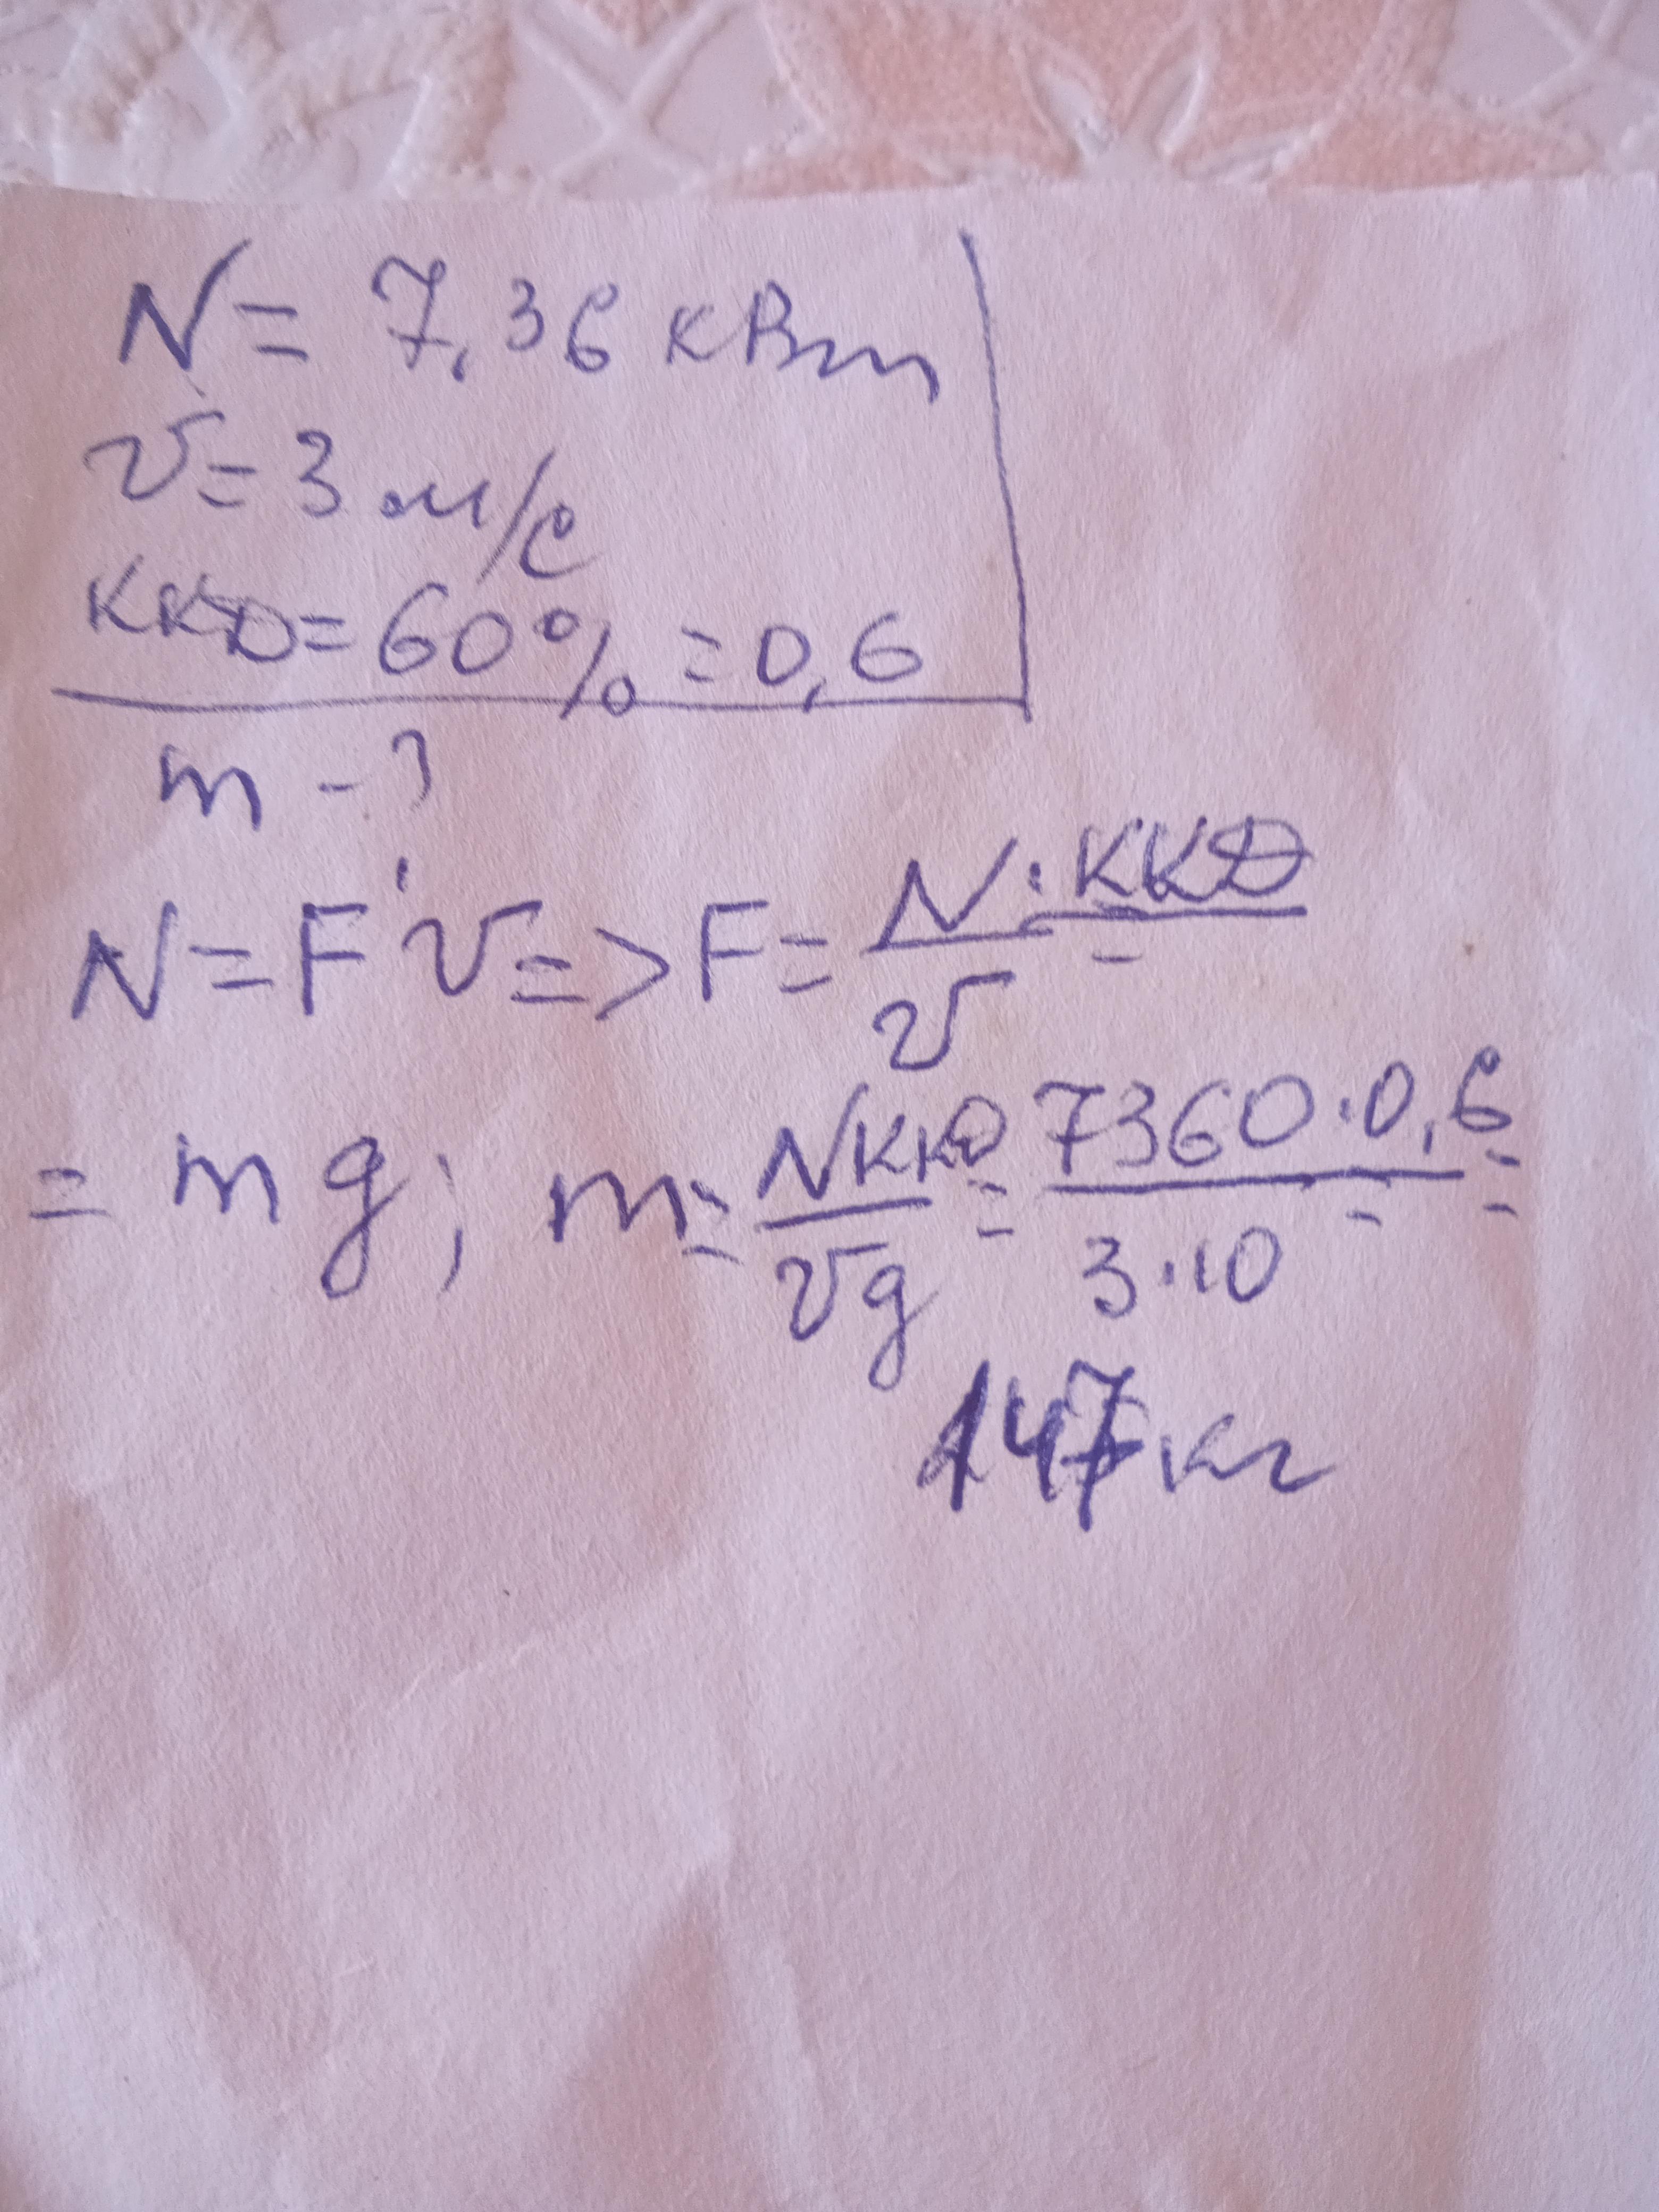 N = 7,36 кВт
v = 3 м/с
ККД = 60% = 0,6
m - ?
N = F·v => F = N·ККД / v =
= mg; m = NККД / vg = 7360·0,6 / 3·10 =
147 кг